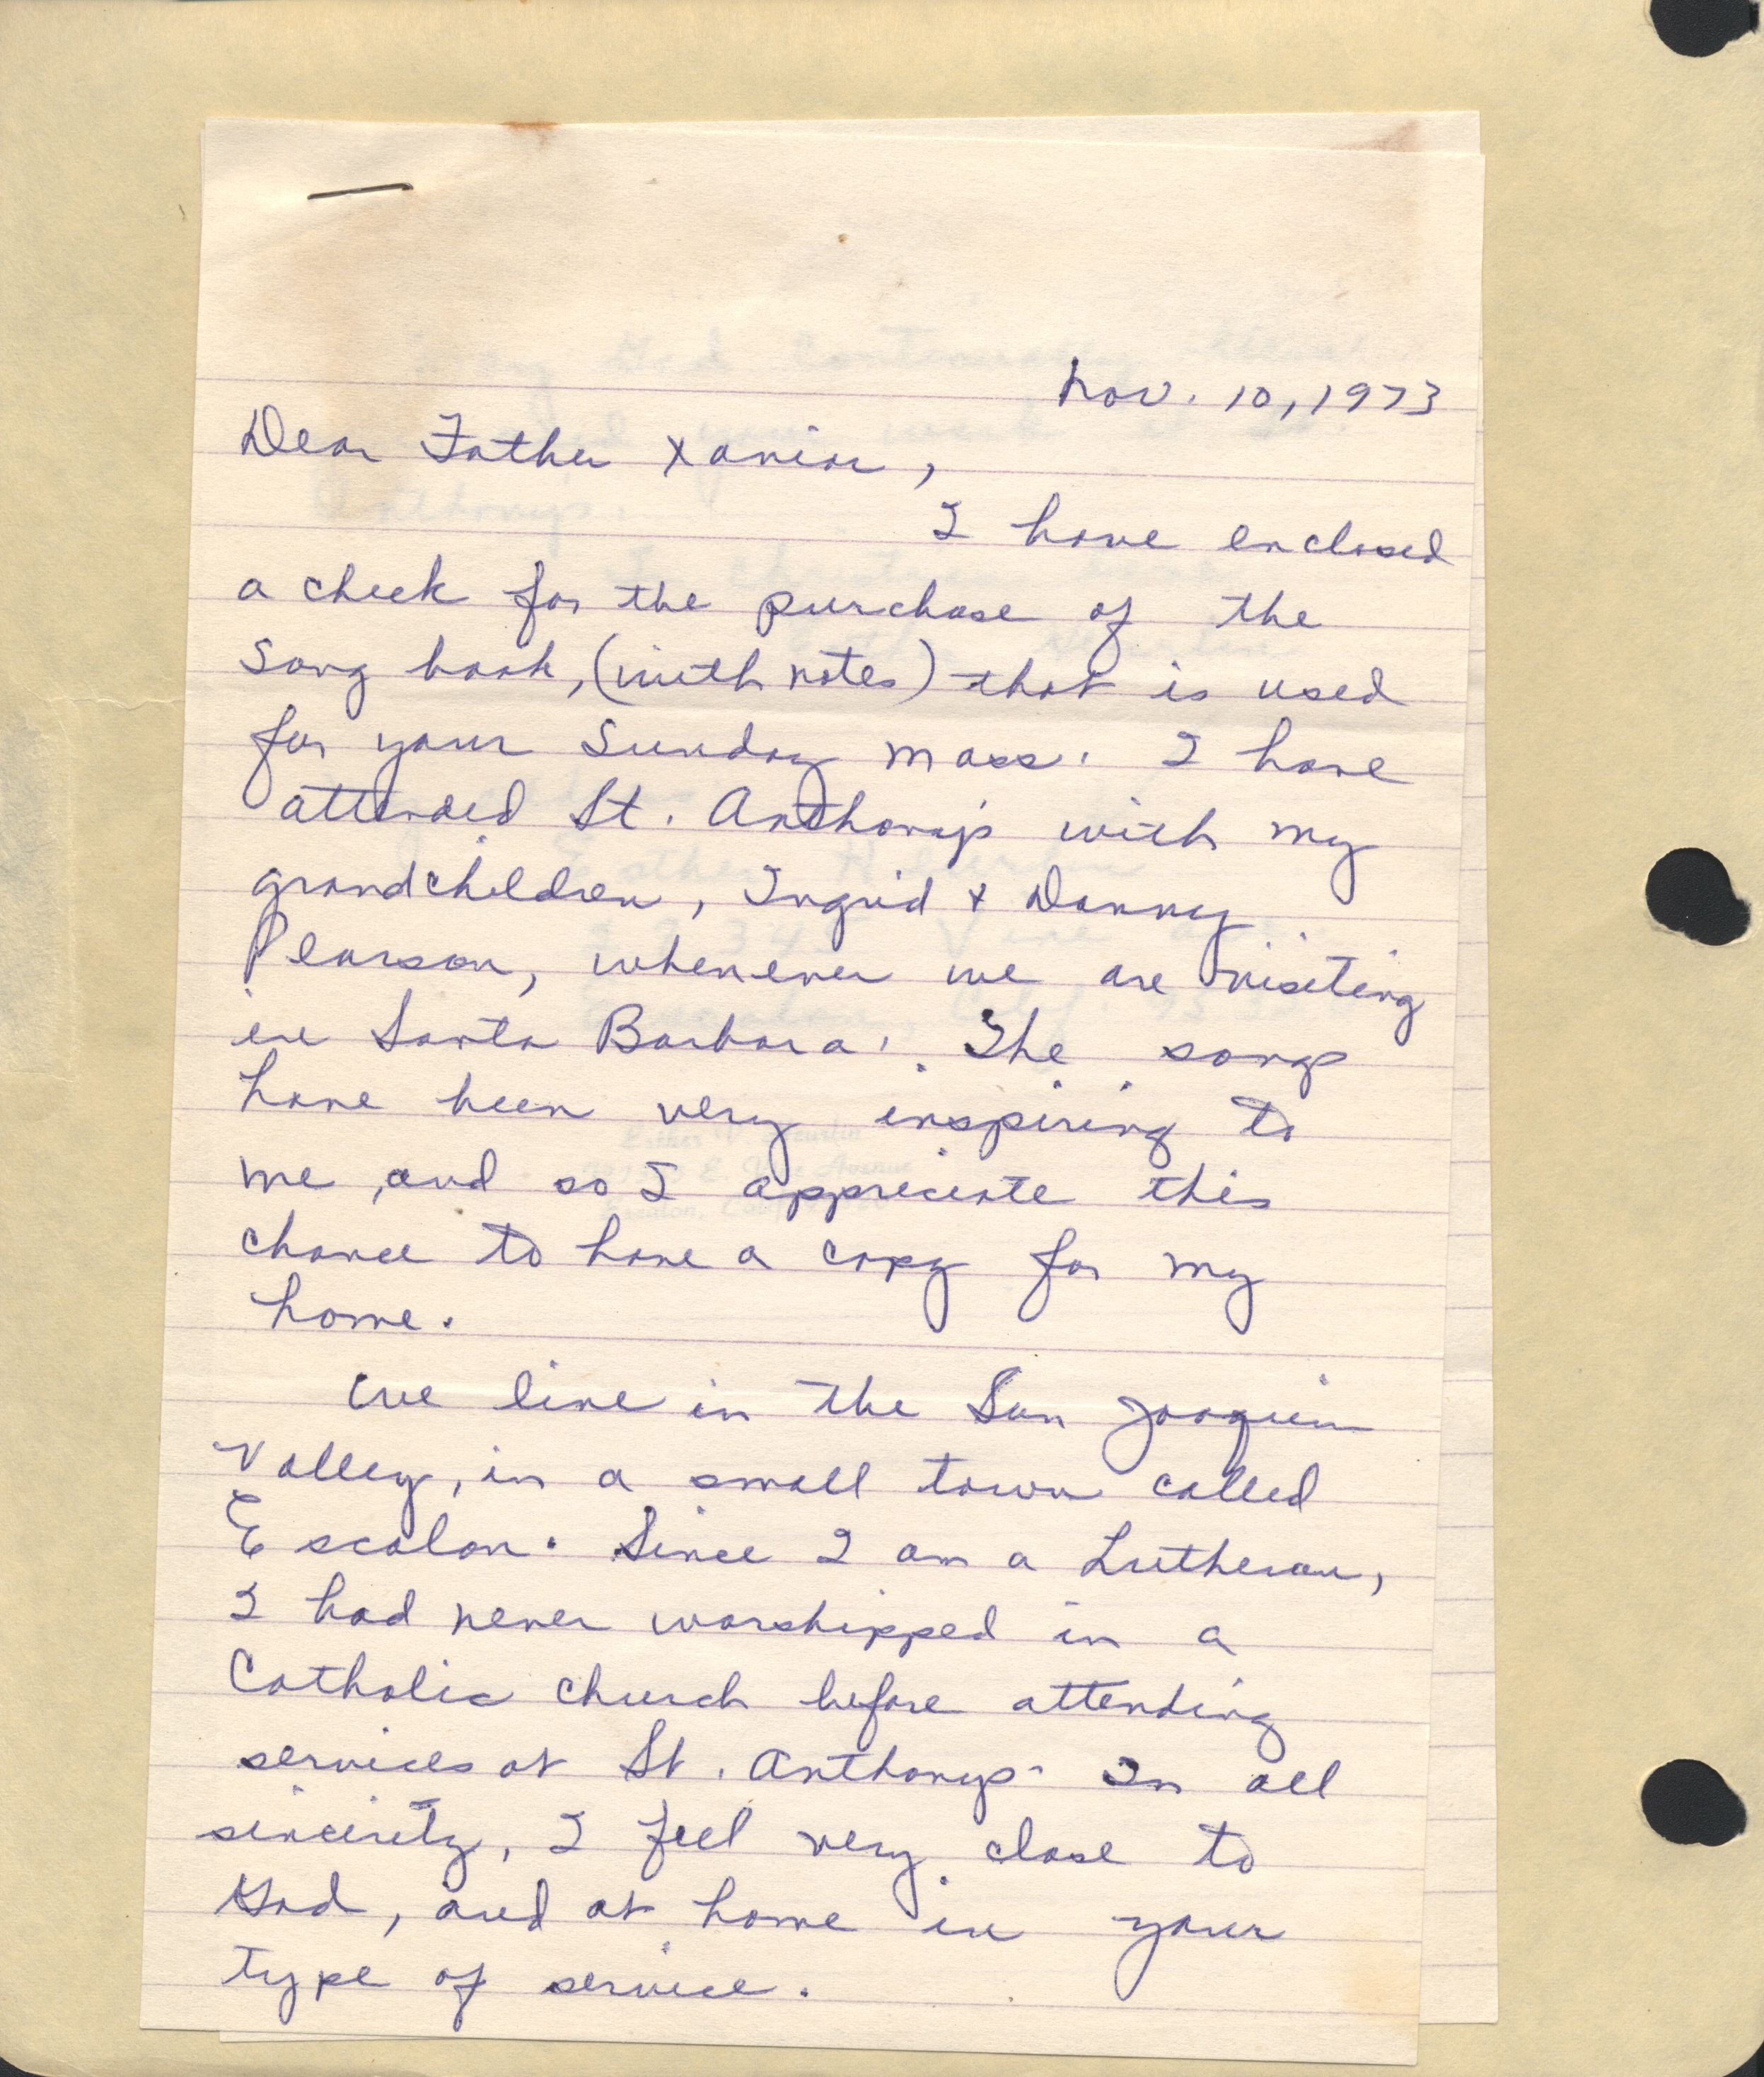 Nov. 10, 1973
Dear Father Xavier,
I have enclosed
a check for the purchase of the
song book, (with notes) that is used
for your Sunday Mass. I have
attended St. Anthony's with my
grandchildren, Ingrid & Danny
Pearson, whenever we are visiting
in Santa Barbara. The songs
have been very inspiring to
me, and so I appreciate this
chance to have a copy for my
home.
We live in the San Joaquin
Valley, in a small town called
Escalon. Since I am a Lutheran,
I had never worshipped in a
Catholic church before attending
services at St. Anthonys. In all
sincerity, I feel very close to
God, and at home in your
type of service.